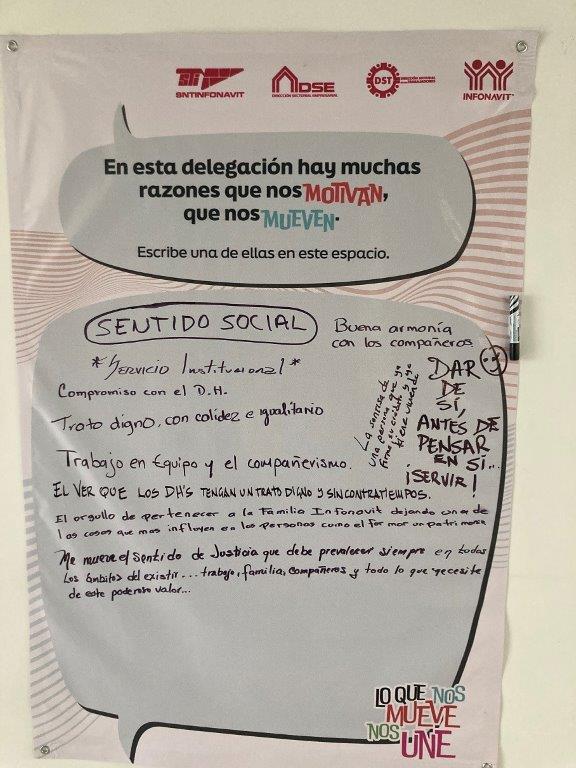 SNTINFONAVIT
DSE
DIRECCIÓN SECTORIAL EMPRESARIAL
DST
DIRECCIÓN SECTORIAL
DE LOS TRABAJADORES
INFONAVIT
En esta delegación hay muchas
razones que nos MOTIVAN,
que nos MUEVEN.
Escribe una de ellas en este espacio.
SENTIDO SOCIAL
Buena armonía
con los compañeros
*Servicio Institucional*
Compromiso con el D.H.
Trato digno, con calidez e igualitario
La sonrisa de
una persona que ya
firmo su crédito y ya
tiene vivienda
DAR
DE
SÍ,
ANTES DE
PENSAR
EN SÍ...
¡SERVIR!
Trabajo en Equipo y el compañerismo.
EL VER QUE LOS DH'S TENGAN UN TRATO DIGNO Y SIN CONTRATIEMPOS.
El orgullo de pertenecer a la Familia Infonavit dejando una de
las cosas que mas influyen en las personas como el formar un patrimonio
Me mueve el Sentido de Justicia que debe prevalecer siempre en todos
los ámbitos del existir... trabajo, familia, compañeros y todo lo que necesite
de este poderoso valor...
LO QUE NOS
MUEVE
NOS UNE